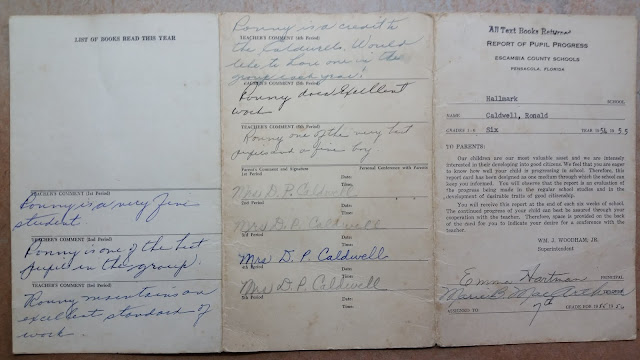 LIST OF BOOKS READ THIS YEAR
TEACHER'S COMMENT (1st Period)
Ronny is a very fine
student
TEACHER'S COMMENT (2nd Period)
Ronny is one of the best
pupils in the group.
TEACHER'S COMMENT (3rd Period)
Ronny maintains an
excellent standard of
work.
Ronny is a credit to
TEACHER'S COMMENT (4th Period)
the Caldwells. Would
like to have one in the
group each year!
PARENT'S COMMENT (5th Period)
Ronny does excellent
work
TEACHER'S COMMENT (6th Period)
Ronny one of the very best
pupils and a fine boy.
Parent's Comment and Signature Personal Conference with Parents
1st Period Date:
Time:
Mrs D. P. Caldwell
2nd Period Date:
Time:
Mrs. D. P. Caldwell
3rd Period Date:
Time:
Mrs D. P. Caldwell
4th Period Date:
Time:
Mrs D. P. Caldwell
5th Period Date:
Time:
All Text Books Returned
REPORT OF PUPIL PROGRESS
ESCAMBIA COUNTY SCHOOLS
PENSACOLA, FLORIDA
Hallmark SCHOOL
NAME Caldwell, Ronald
GRADES 1-6 Six YEAR 1954 1955
TO PARENTS:
Our children are our most valuable asset and we are intensely
interested in their developing into good citizens. We feel that you are eager
to know how well your child is progressing in school. Therefore, this
report card has been designed as one medium through which the school can
keep you informed. You will observe that the report is an evaluation of
the progress being made in the regular school studies and in the
development of desirable traits of good citizenship.
You will receive this report at the end of each six weeks of school.
The continued progress of your child can best be assured through your
cooperation with the teacher. Therefore, space is provided on the back
of the card for you to indicate your desire for a conference with the
teacher.
WM. J. WOODHAM, JR.
Superintendent
Emma Hartman PRINCIPAL
Marie MacArthur
ASSIGNED TO 7th GRADE FOR 1955 56